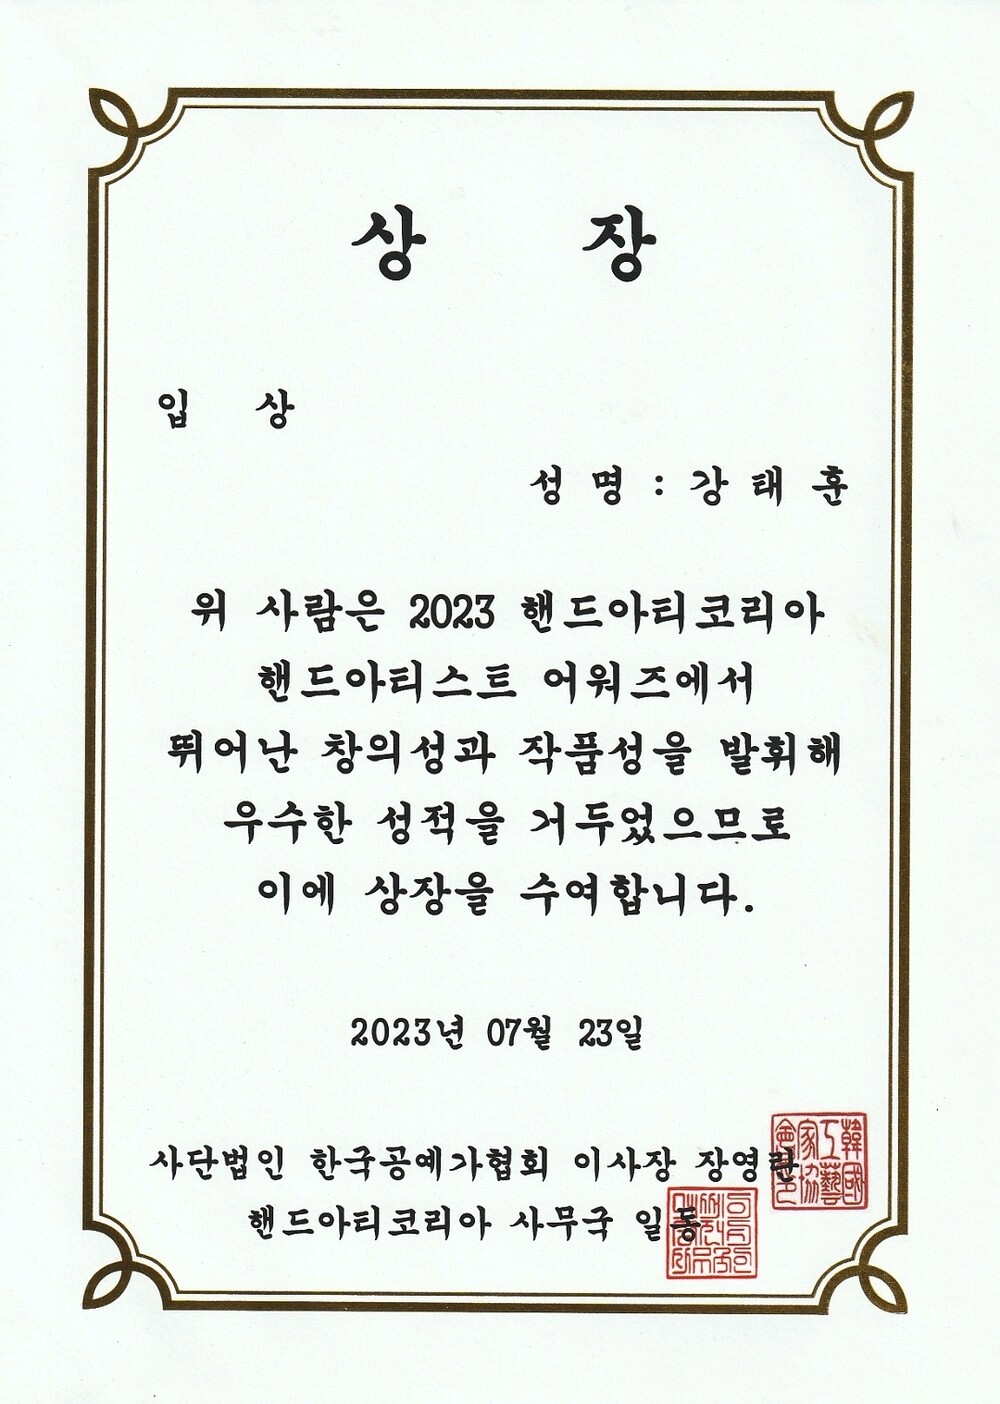 상 장
입 상
성 명 : 강 태 훈
위 사람은 2023 핸드아티코리아
핸드아티스트 어워즈에서
뛰어난 창의성과 작품성을 발휘해
우수한 성적을 거두었으므로
이에 상장을 수여합니다.
2023년 07월 23일
사단법인 한국공예가협회 이사장 장영란
핸드아티코리아 사무국 일동
韓國工藝家協會